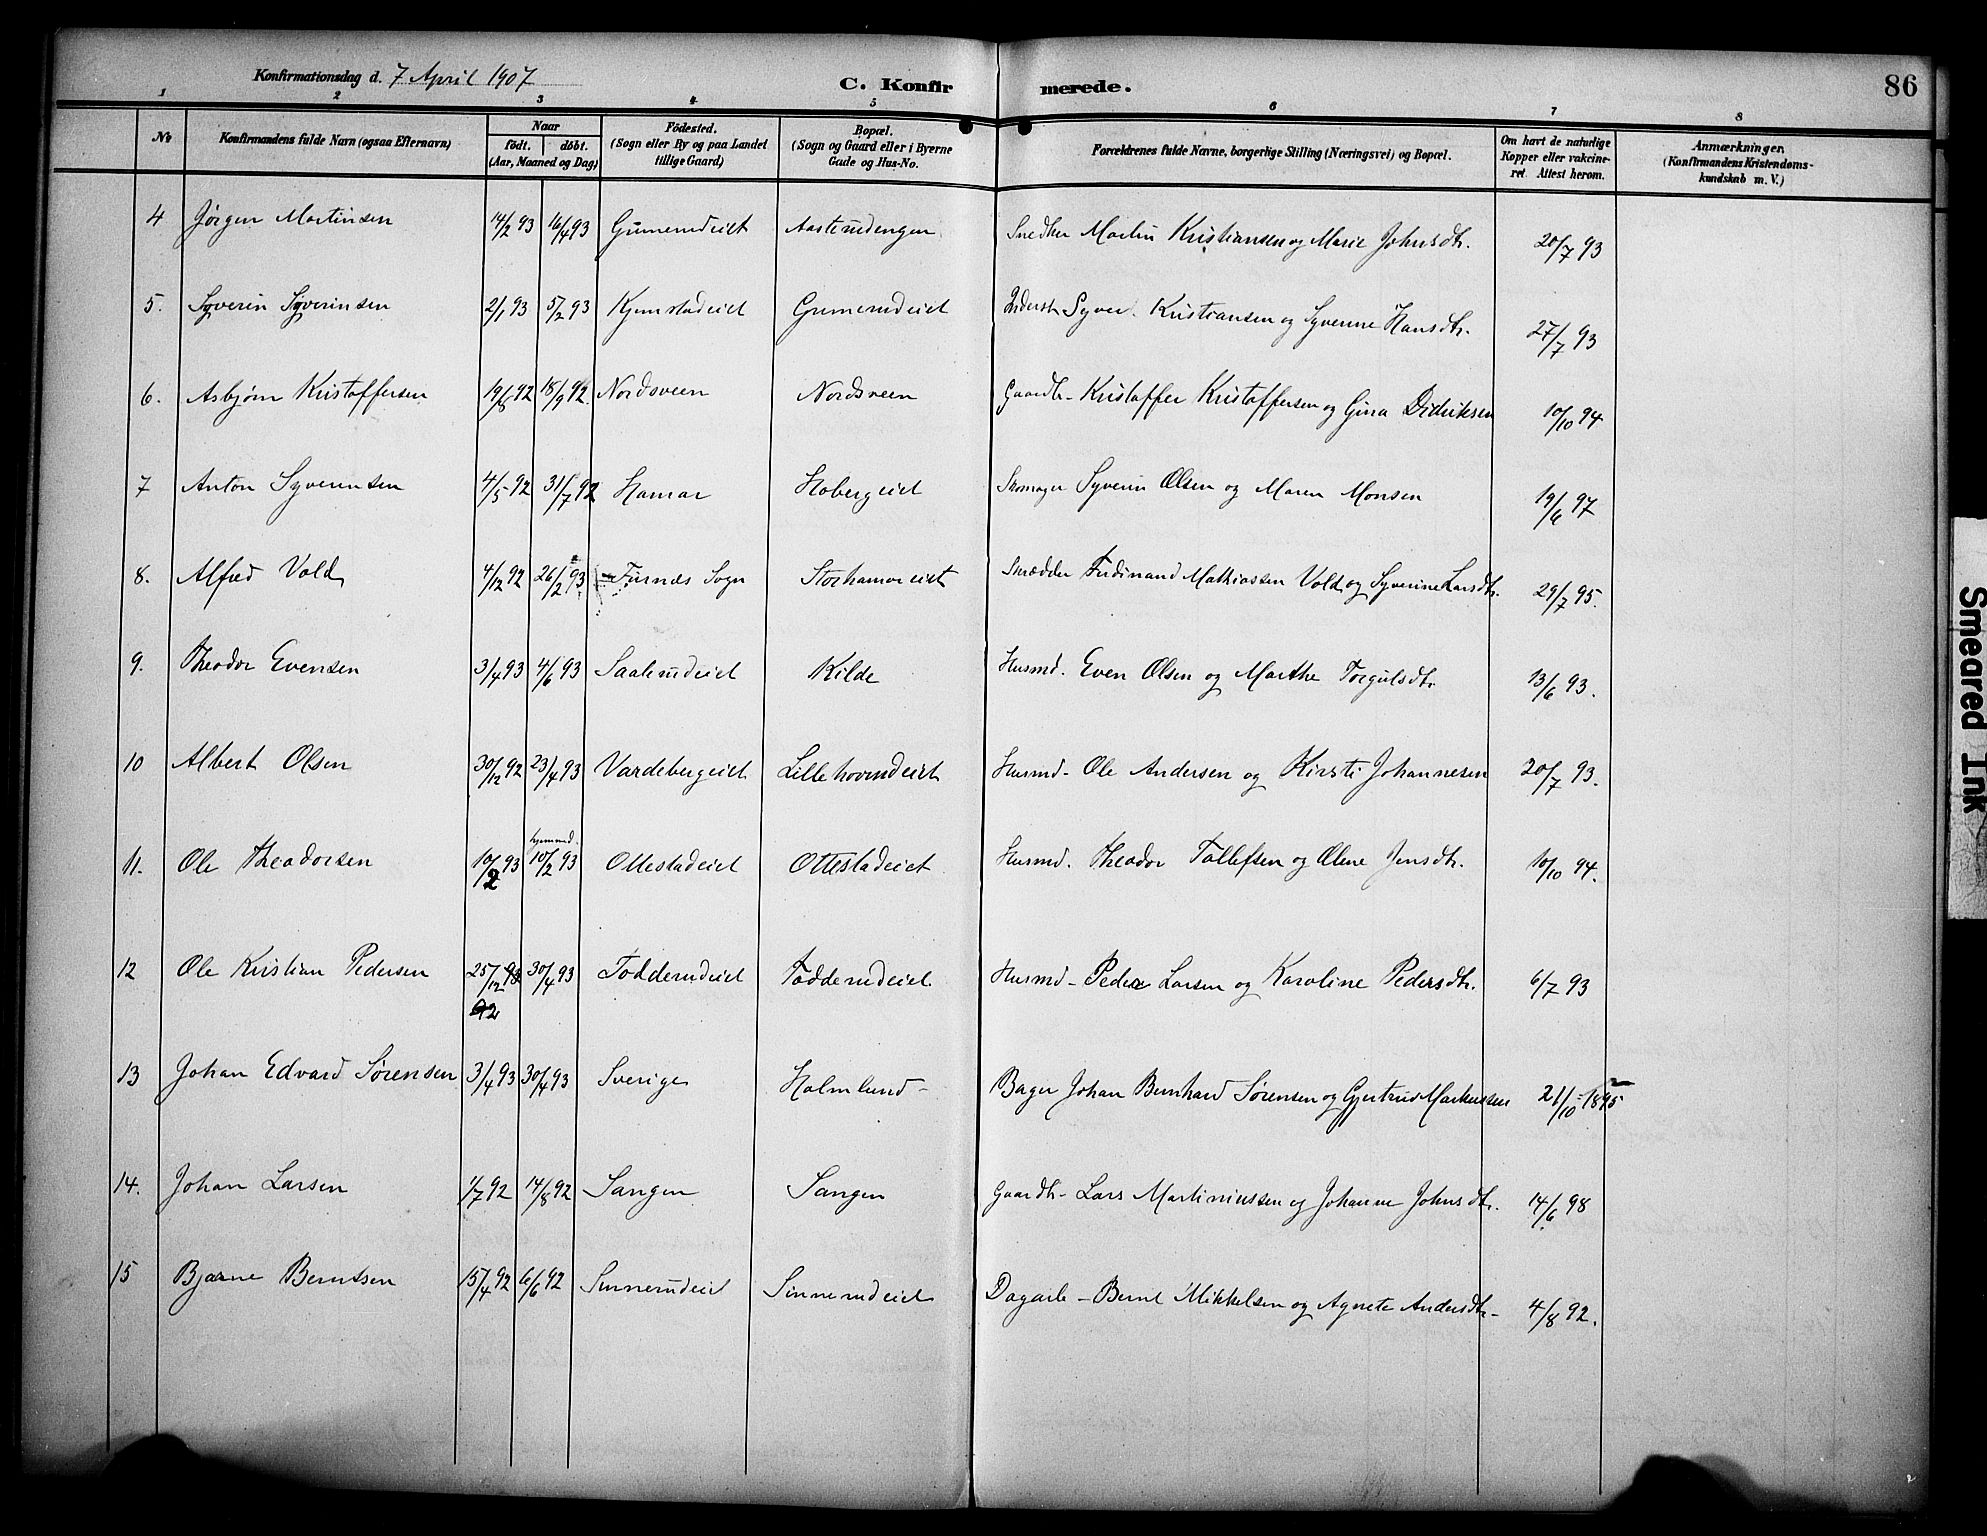 Konfirmationsdag d. 7 April 1907
C. Konfirmerede.
86
1 2 3 4 5 6 7 8
No
Konfirmandens fulde Navn (ogsaa Efternavn)
Naar
født. døbt.
(Aar, Maaned og Dag)
Fødested.
(Sogn eller By og paa Landet
tillige Gaard)
Bopæl.
(Sogn og Gaard eller i Byerne
Gade og Hus-No.
Forældrenes fulde Navne, borgerlige Stilling (Næringsvei) og Bopæl.
Om havt de naturlige
Kopper eller vakcine-
ret. Attest herom.
Anmærkninger.
(Konfirmandens Kristendoms-
kundskab m. V.)
4 Jørgen Martinsen 14/2 93 16/4 93 Gumerudeiet Aasterudengen Snedker Martin Kristiansen og Marie Johnsdtr. 20/7 93
5. Syverin Syverinsen 2/1 93 5/2 93 Kjemstadeiet Gumerudeiet Inderst Syver Kristiansen og Syverine Hansdtr. 27/7 93
6. Asbjørn Kristoffersen 19/8 92 18/9 92. Nordsveen Nordsveen Gaardbr- Kristoffer Kristoffersen og Gina Didriksen 10/10 94
7 Anton Syverinsen 4/5 92 31/7 92 Hamar Hobergeiet Skomager Syverin Olsen og Maren Monsen 19/6 97
8. Alfred Vold 4/12 92 26/2 93 Furnæs Sogn Storhamareiet Skrædder Ferdinand Mathiassen Vold og Syverine Larsdtr. 29/7 95.
9. Theodor Evensen 3/4 93 4/6 93 Saalerudeiet Kilde Husmd. Even Olsen og Marthe Torgulsdtr 13/6 93.
10 Albert Olsen 30/12 92 23/4 93 Vardebergeiet Lillehovindeiet Husmd- Ole Andersen og Kirsti Johannesen 20/7 93.
11. Ole Theodorsen 10/2 93 hjemmed. 10/2 93 Ottestadeiet Ottestadeiet Husmd. Theodor Tollefsen og Oline Jensdtr. 10/10 94.
12 Ole Kristian Pedersen 25/12 93 92 30/4 93 Fodderudeiet Fodderudeiet Husmd- Peder Larsen og Karoline Pedersdtr. 6/7 93
13 Johan Edvard Sørensen 3/4 93 30/4 93 Sverige Holmlund- Bager Johan Bernhard Sørensen og Gjertrud Markussen 21/10-1895
14. Johan Larsen 1/7 92 14/8 92 Sangen Sangen Gaardbr- Lars Martiniussen og Johanne Johnsdtr. 14/6 98
15 Bjarne Berntsen 15/4 92 6/6 92 Sinnerudeiet Sinnerudeiet Dagarb- Bernt Mikkelsen og Agnete Andersdtr- 4/8 92.
Smeared Ink